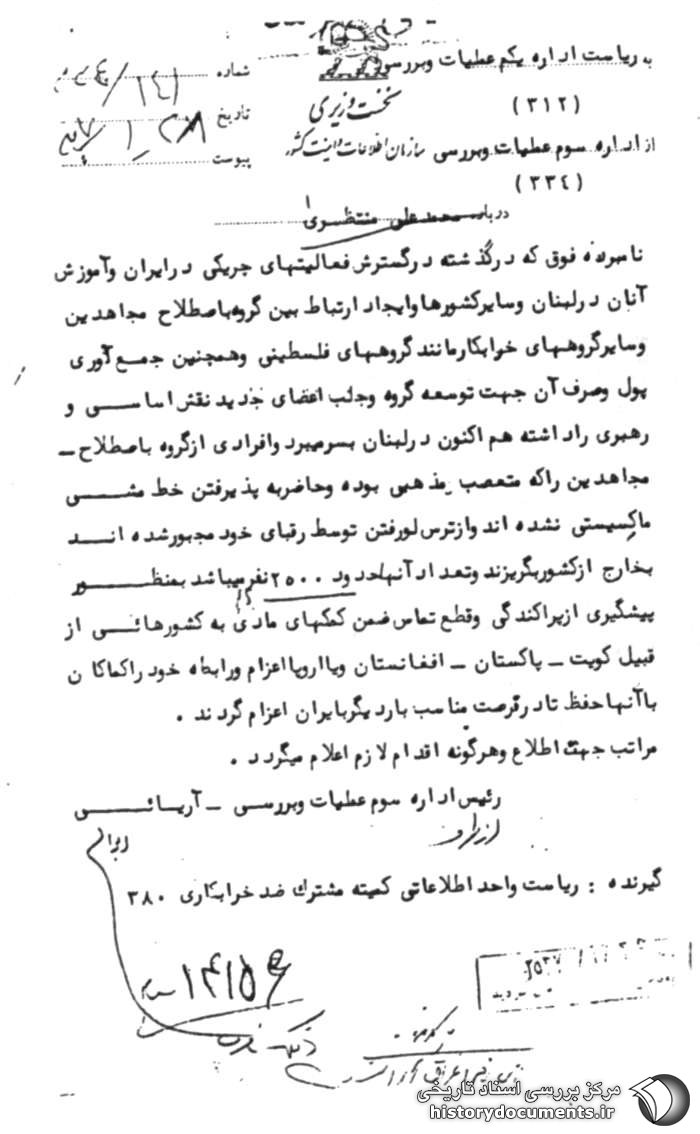 به ریاست اداره یکم عملیات وبررسی
(۳۱۲)
نخست وزیری
شماره
تاریخ
پیوست
از اداره سوم عملیات وبررسی سازمان اطلاعات و امنیت کشور
(۳۳۴)
درباره محمد علی منتظری
نامبرده فوق که درگذشته درگسترش فعالیتهای چریکی درایران وآموزش
آنان درلبنان وسایرکشورها وایجاد ارتباط بین گروه باصطلاح مجاهدین
وسایرگروههای خرابکارمانند گروههای فلسطینی وهمچنین جمع آوری
پول وصرف آن جهت توسعه گروه وجلب اعضای جدید نقش اساسی و
رهبری راداشته هم اکنون درلبنان بسرمیبرد وافرادی ازگروه باصطلاح ـ
مجاهدین راکه متعصب مذهبی بوده وحاضربه پذیرفتن خط مشی
ماکسیستی نشده اند وازترس لورفتن توسط رقبای خود مجبورشده اند
بخارج ازکشوربگریزند وتعداد آنهاحدود ۲۵۰۰ نفرمیباشد بمنظور
پیشگیری ازپراکندگی وقطع تماس ضمن کمکهای مادی به کشورهائی از
قبیل کویت ـ پاکستان ـ افغانستان ویااروپا اعزام ورابطه خود راکماکان
باآنهاحفظ تادرفرصت مناسب باردیگربایران اعزام گردند .
مراتب جهت اطلاع وهرگونه اقدام لازم اعلام میگردد .
رئیس اداره سوم عملیات وبررسی ـ آریائی
از طرف
گیرنده : ریاست واحد اطلاعاتی کمیته مشترک ضد خرابکاری ۳۸۰
مرکز بررسی اسناد تاریخی
historydocuments.ir